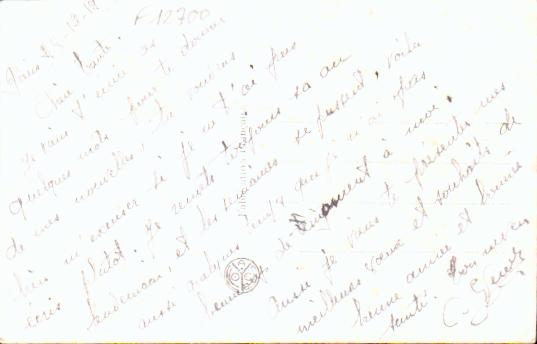 F 12700
Paris
Chère tante.
Je viens t'écrire ces
quelques mots pour te donner
de mes nouvelles, tu voudras
bien m'excuser si je ne t'ai pas
écris plutôt. Je remets toujours ça au
lendemain, et les semaines se passent, voila
aussi quelques jours que je n'ai pas
beaucoup de à moi.
Aussi je viens te présenter mes
meilleurs vœux et souhaits de
bonne année et bonne
santé. Ton neveu
C.